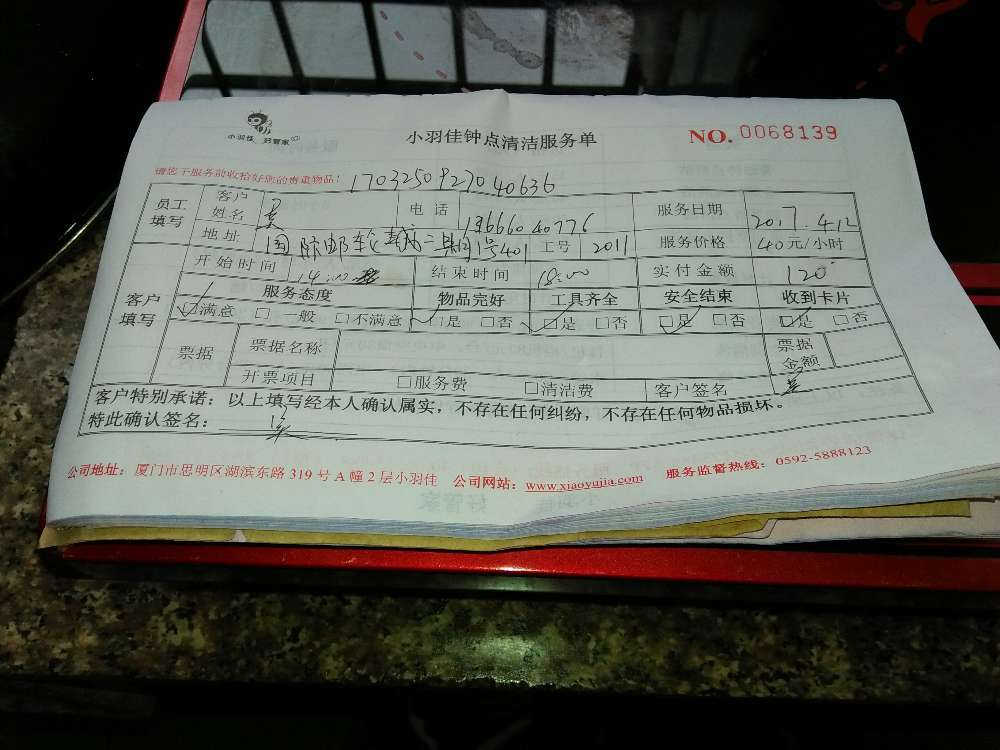 小羽佳 好管家
小羽佳钟点清洁服务单
NO. 0068139
请您于服务前收拾好您的贵重物品!
1703250927040636
员工填写 客户姓名 电话 服务日期 2017.4.12
地址 国际邮轮 二期 1号401 工号 2011 服务价格 40元/小时
开始时间 14:00 结束时间 18:00 实付金额 120
客户填写 服务态度 物品完好 工具齐全 安全结束 收到卡片
☑满意 □ 一般 □不满意 ☑是 □否 ☑是 □否 ☑是 □否 ☑是 □否
票据 票据名称 票据金额
开票项目 □服务费 □清洁费 客户签名
客户特别承诺:以上填写经本人确认属实,不存在任何纠纷,不存在任何物品损坏。
特此确认签名:
公司地址:厦门市思明区湖滨东路 319 号 A 幢 2 层小羽佳 公司网站:www.xiaoyujia.com 服务监督热线:0592-5888123